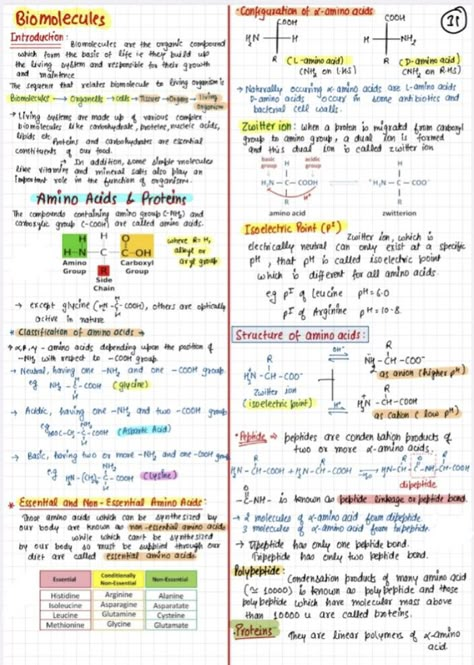 Biomolecules
Introduction:
Biomolecules are the organic compound
which form the basis of life ie they build up
the living system and responsible for their growth
and maintence
The sequence that relates biomolecule to living organism is
Biomolecules → Organells → cells → Tissue → Organs → Living organism
→ Living systems are made up of various complex
biomolecules like carbohydrate, proteins, nucleic acids,
lipids etc.
Proteins and carbohydrates are essential
constituents of our food.
→ In addition, some simple molecules
like vitamins and mineral salts also play an
important role in the function of organisms.
Amino Acids & Proteins
The compounds containing amino group (-NH2) and
carboxylic group (-COOH) are called amino acids.
H H O
H-N C C-OH
Amino Group
R
Carboxyl Group
Side Chain
where R = H, alkyl or aryl group
→ except glycine (H2N-CH2-COOH), others are optically
active in nature
* Classification of amino acids →
→ α, β, γ - amino acids depending upon the position of
-NH2 with respect to -COOH group.
→ Neutral, having one -NH2 and one -COOH group
eg (glycine)
→ Acidic, having one -NH2 and two -COOH group
eg (Aspartic Acid)
→ Basic, having two or more -NH2 and one -COOH group
eg (Lysine)
* Essential and Non-Essential Amino Acids:
Those amino acids which can be synthesized by
our body are known as non-essential amino acids
while which can't be synthesized
by our body so must be supplied through our
diet are called essential amino acids.
Essential Conditionally Non-Essential Non-Essential
Histidine Arginine Alanine
Isoleucine Asparagine Asparatate
Leucine Glutamine Cysteine
Methionine Glycine Glutamate
• Configuration of α-amino acids
11
COOH COOH
H2N H H NH2
R R
(L-amino acid) (D-amino acid)
(NH2 on LHS) (NH2 on RHS)
→ Naturally occuring α-amino acids are L-amino acids
D-amino acids occur in some antibiotics and
bacterial cell walls.
Zwitter ion: when a proton is migrated from carboxyl
group to amino group, a dual ion is formed
and this dual ion is called zwitter ion
basic group H acidic group H
H2N-C-COOH +H3N-C-COO-
R R
amino acid zwitterion
Isoelectric Point (pI)
Zwitter ion, which is
electrically neutral can only exist at a specific
pH, that pH is called isoelectric point
which is different for all amino acids.
eg pI of leucine pH=6.0
pI of Arginine pH=10.8
Structure of amino acids:
R
NH2-CH-COO-
as anion (higher pH)
R
+NH3-CH-COO-
Zwitter ion
(isoelectric point)
OH-
R
NH3-CH-COOH
as cation (low pH)
• Peptide → peptides are condensation products of
two or more α-amino acids.
dipeptide
is known as peptide linkage or peptide bond.
→ 2 molecules of α-amino acid form dipeptide
3 molecules of α-amino acid form tripeptide.
→ Dipeptide has only one peptide bond.
Tripeptide has only two peptide bond.
Polypeptide:
Condensation products of many amino acid
(≈ 10000) is known as polypeptide and those
polypeptide which have molecular mass above
than 10000 u are called proteins.
• Proteins They are linear polymers of α-amino
acid.